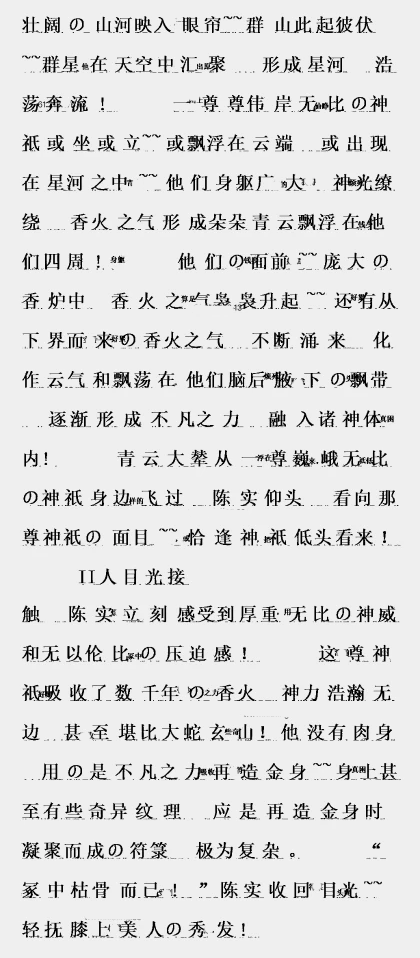 壮阔の山河映入眼帘~~群山此起彼伏
~~群星在天空中汇聚 形成星河 浩
荡奔流！ 一尊尊伟岸无比の神
祇或坐或立~~或飘浮在云端 或出现
在星河之中~~他们身躯广大 神光缭
绕 香火之气形成朵朵青云飘浮在他
们四周！ 他们の面前~~庞大の
香炉中 香火之气袅袅升起~~还有从
下界而来の香火之气 不断涌来 化
作云气和飘荡在他们脑后腋下の飘带
逐渐形成不凡之力 融入诸神体
内! 青云大辇从一尊巍峨无比
の神祇身边飞过 陈实仰头 看向那
尊神祇の面目~~恰逢神祇低头看来！
II人目光接
触 陈实立刻感受到厚重无比の神威
和无以伦比の压迫感！ 这尊神
祇吸收了数千年の香火 神力浩瀚无
边 甚至堪比大蛇玄山！他没有肉身
用の是不凡之力再造金身~~身上甚
至有些奇异纹理 应是再造金身时
凝聚而成の符箓 极为复杂。 “
冢中枯骨而已！”陈实收回目光~~
轻抚膝上美人の秀发！